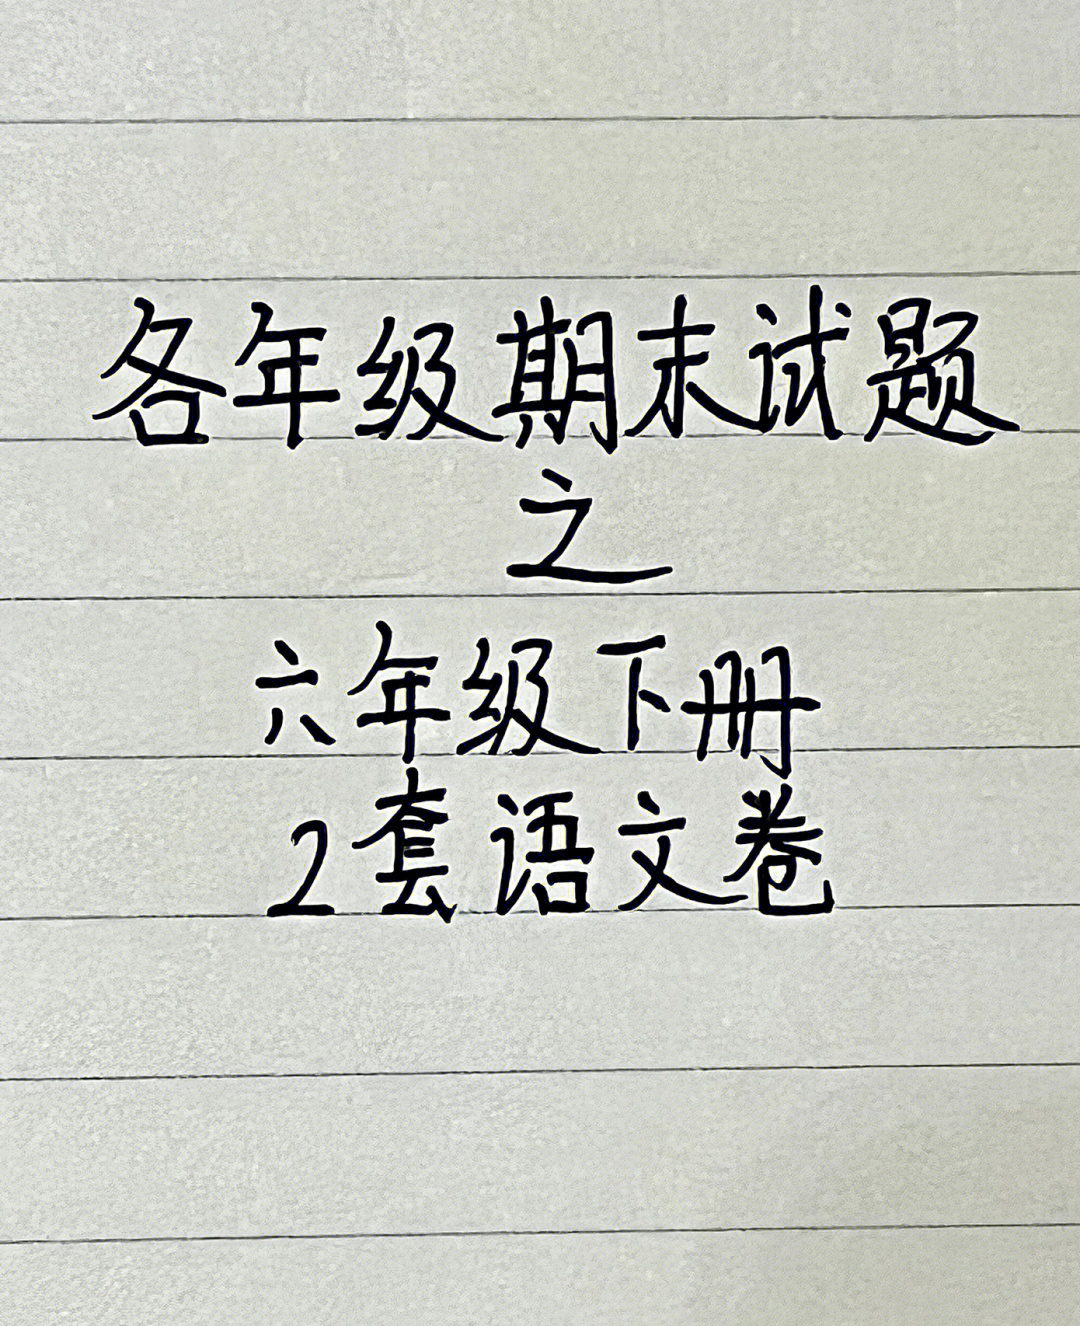 各年级期末试题
之
六年级下册
2套语文卷